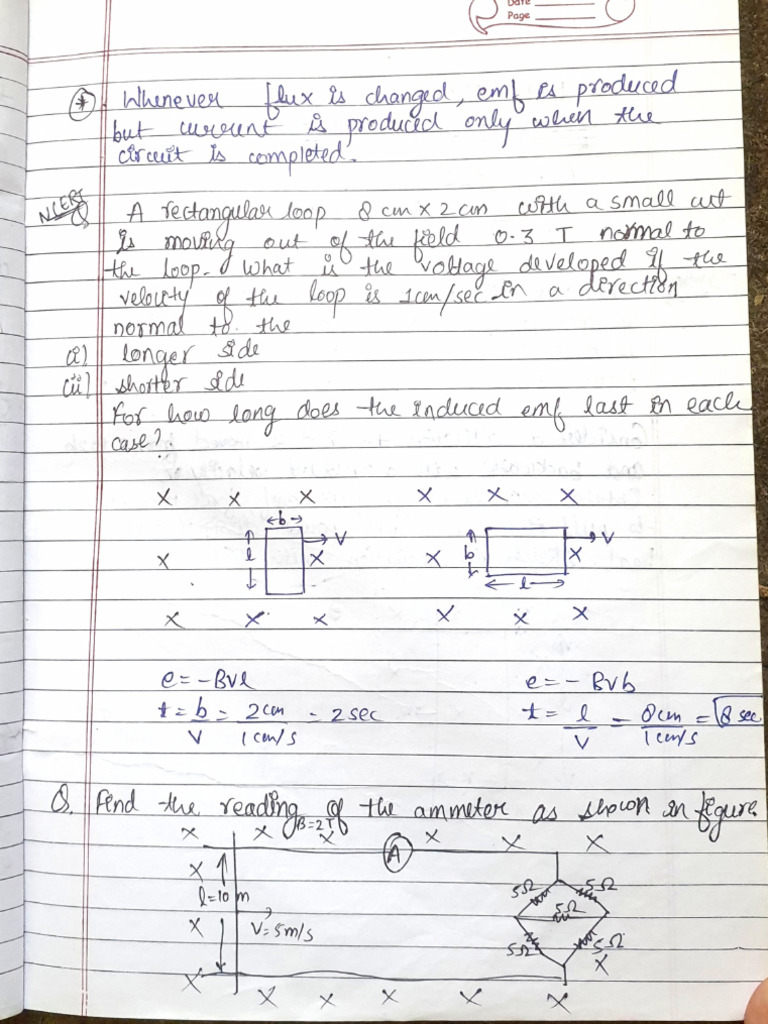 Date
Page
* Whenever flux is changed, emf is produced
but current is produced only when the
circuit is completed.
NCERT
Q A rectangular loop 8 cm x 2 cm with a small cut
is moving out of the field 0.3 T normal to
the loop. What is the voltage developed if the
velocity of the loop is 1cm/sec in a direction
normal to the
(i) longer side
(ii) shorter side
For how long does the induced emf last in each
case?
x x x x x x
b
l V b V
x x x x
l
x x x x x x
e = -Bvl e = - Bvb
t = b/V = 2cm/1cm/s = 2sec t = l/V = 8cm/1cm/s = 8 sec
Q. Find the reading of the ammeter as shown in figure.
B=2T
x x x x x x
A
x
5Ω 5Ω
l=10 m
5Ω
x V = 5m/s
5Ω 5Ω
x x
x x x x x